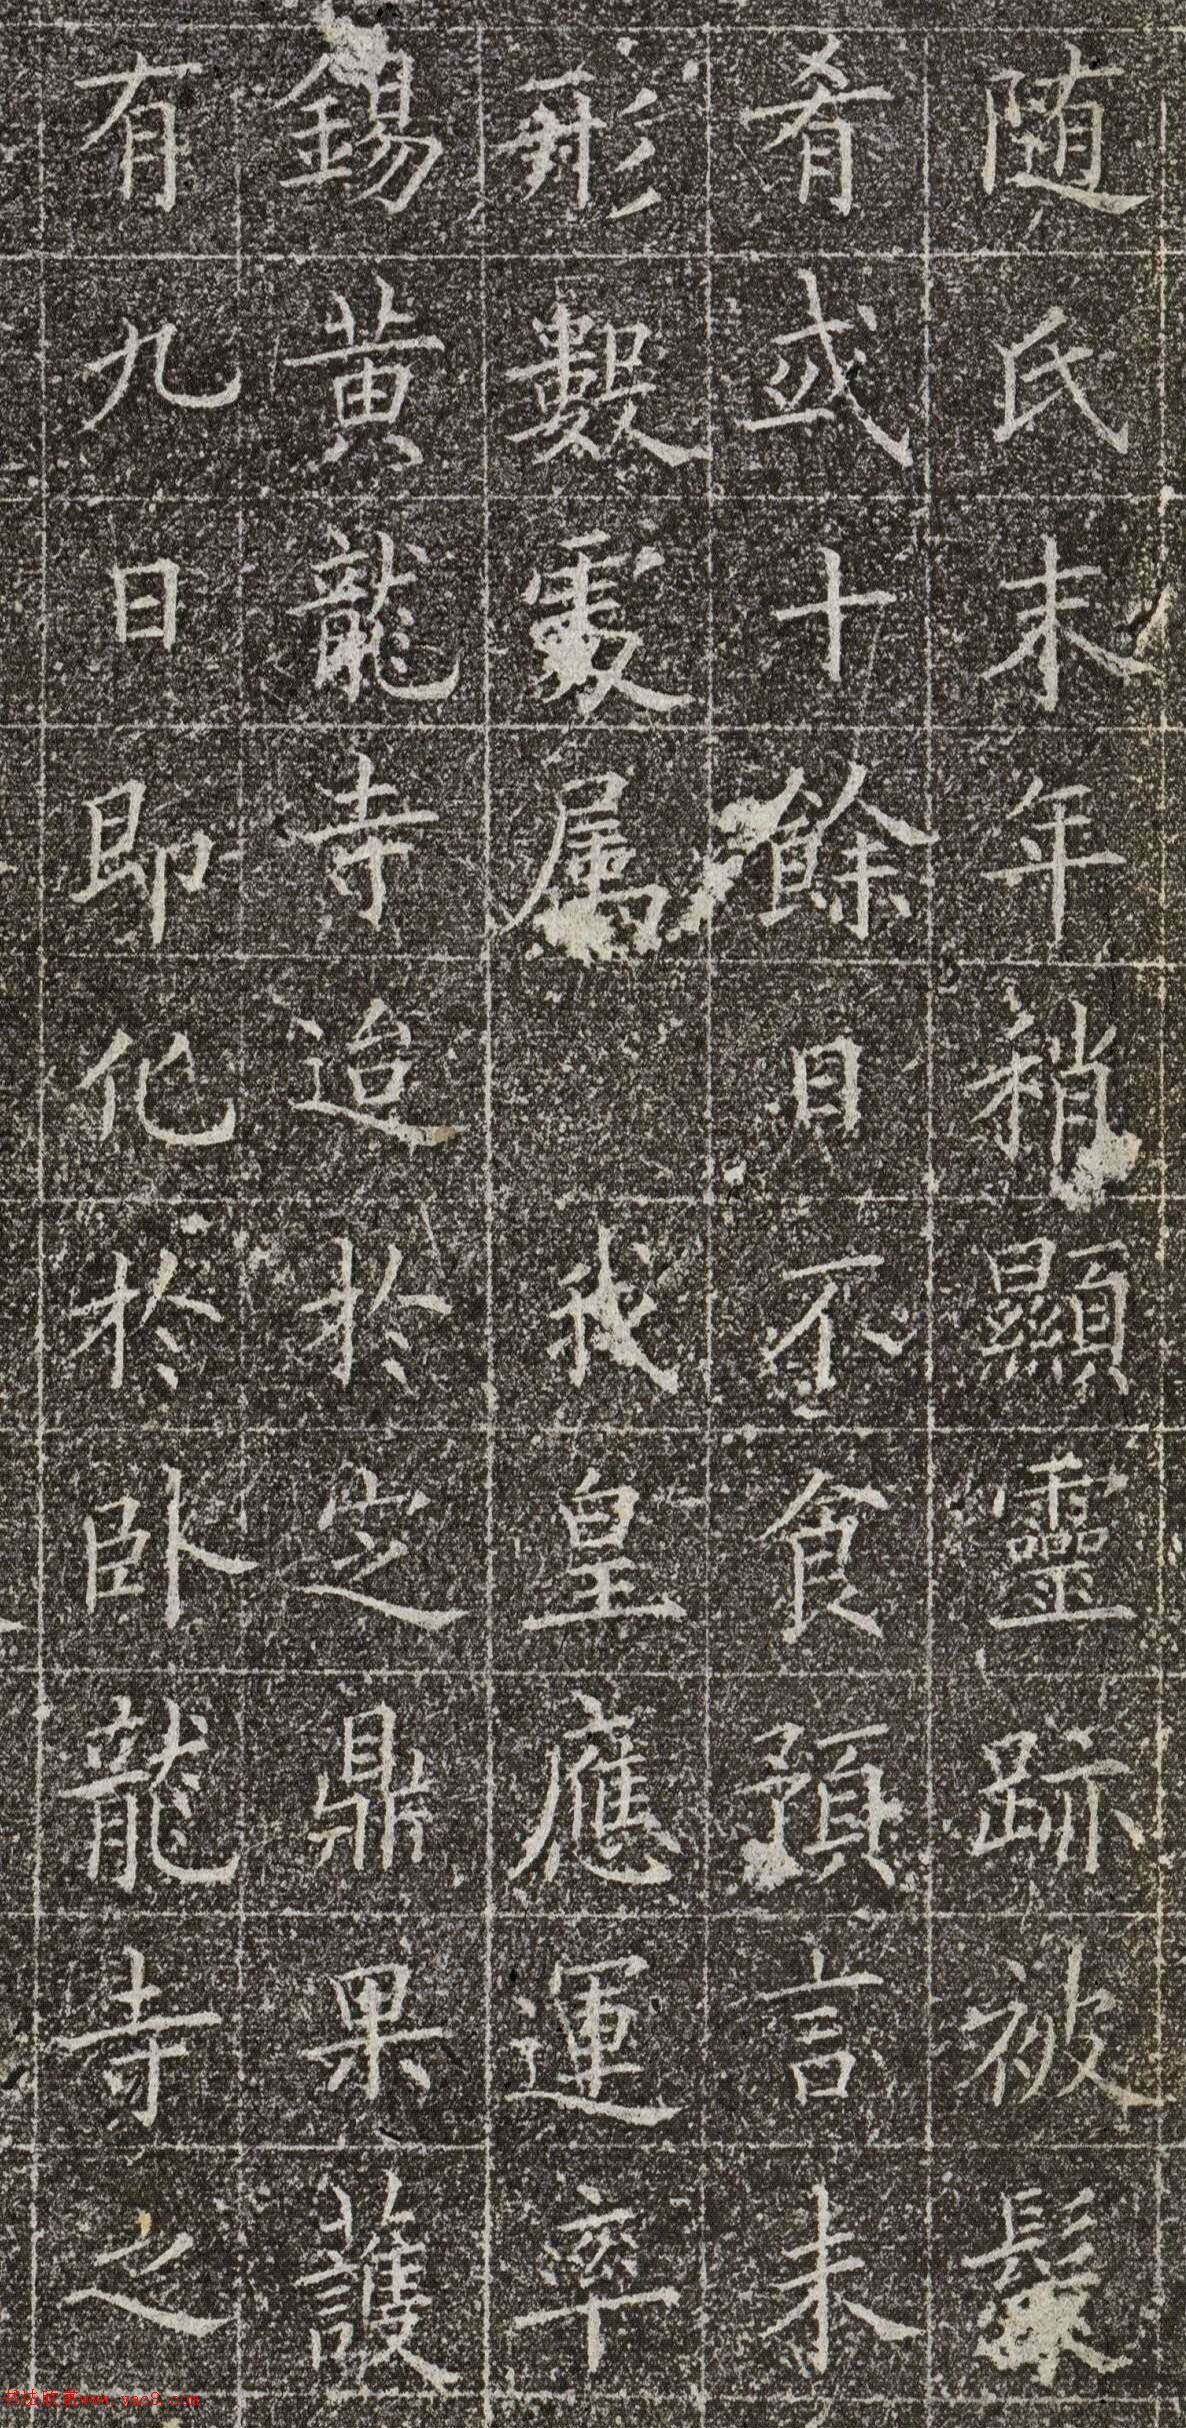 随氏末年稍顯靈跡被髮
肴或十餘日不食預言未
形數處属 我皇應運率
錫黄龍寺迨於定鼎果護
有九日即化於卧龍寺之
书法欣赏www.yac8.com